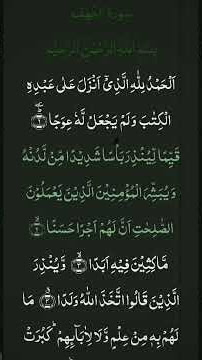 سورة الكهف
بِسْمِ اللهِ الرَّحْمٰنِ الرَّحِيْمِ
اَلْحَمْدُ لِلّٰهِ الَّذِيْٓ اَنْزَلَ عَلٰى عَبْدِهِ
الْكِتٰبَ وَلَمْ يَجْعَلْ لَّهٗ عِوَجًا ۝١
قَيِّمًا لِّيُنْذِرَ بَاْسًا شَدِيْدًا مِّنْ لَّدُنْهُ
وَيُبَشِّرَ الْمُؤْمِنِيْنَ الَّذِيْنَ يَعْمَلُوْنَ
الصّٰلِحٰتِ اَنَّ لَهُمْ اَجْرًا حَسَنًا ۝٢
مَّاكِثِيْنَ فِيْهِ اَبَدًا ۝٣ وَّيُنْذِرَ
الَّذِيْنَ قَالُوا اتَّخَذَ اللّٰهُ وَلَدًا ۝٤ مَا
لَهُمْ بِهٖ مِنْ عِلْمٍ وَّلَا لِاٰبَآئِهِمْ ؕ كَبُرَتْ